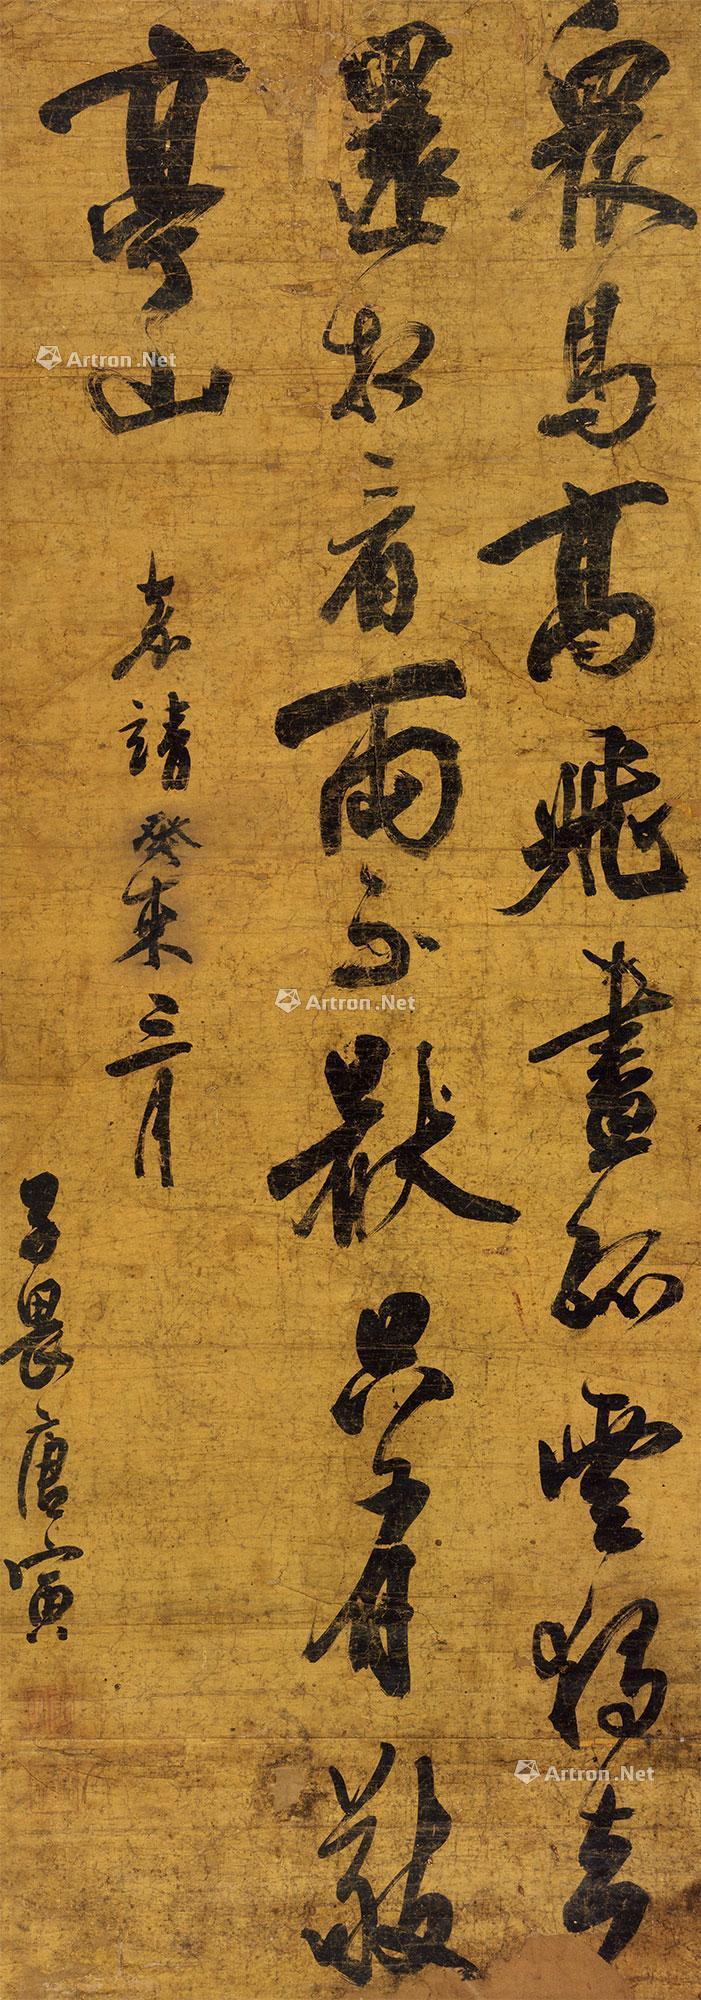 眾鳥高飛盡孤雲獨去
還相看兩不猒只有敬
亭山
嘉靖癸未三月
子畏唐寅
Artron.Net
Artron.Net
Artron.Net